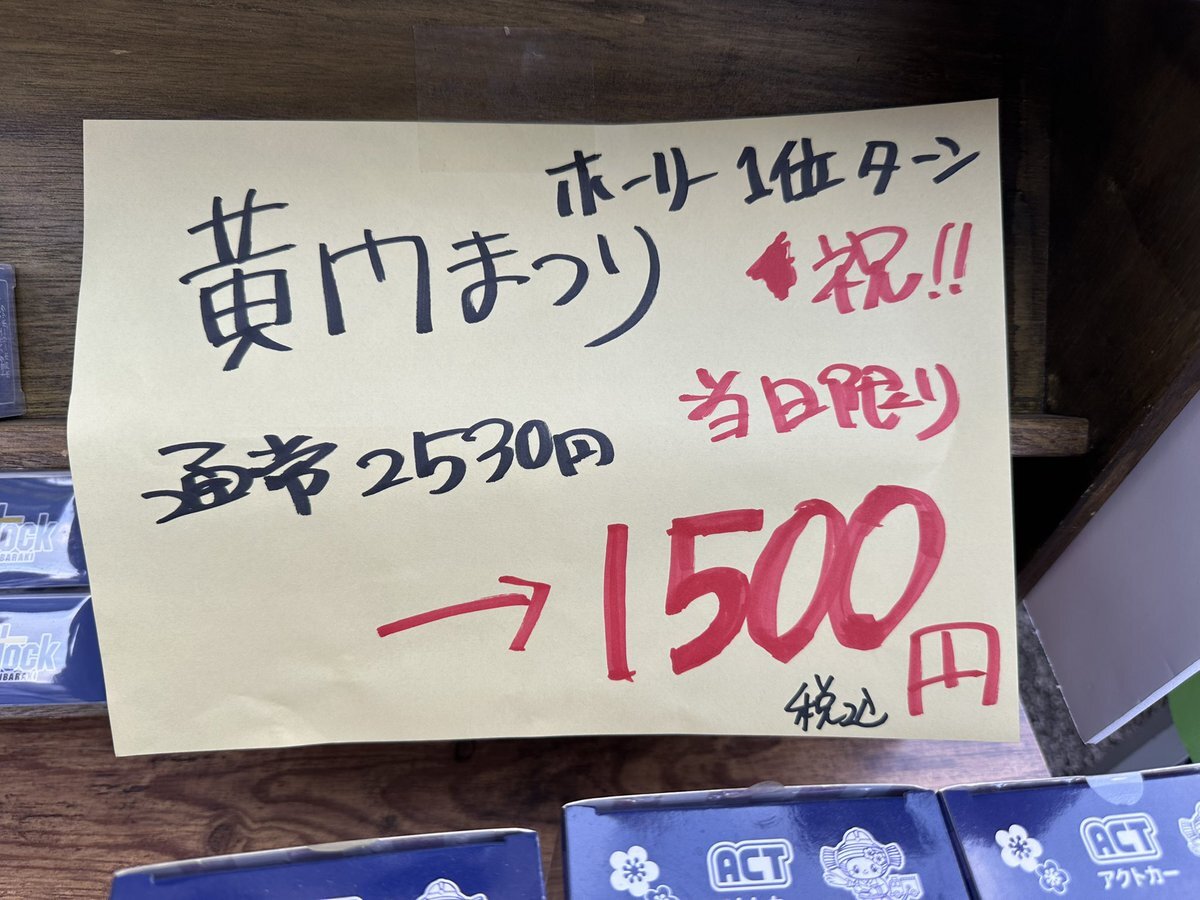 ホーリー 1位ターン
黄門まつり
祝!!
当日限り
通常2530円
→1500円
税込
lock
IBARAKI
lock
IBARAKI
ACT
ACT
アクトカー